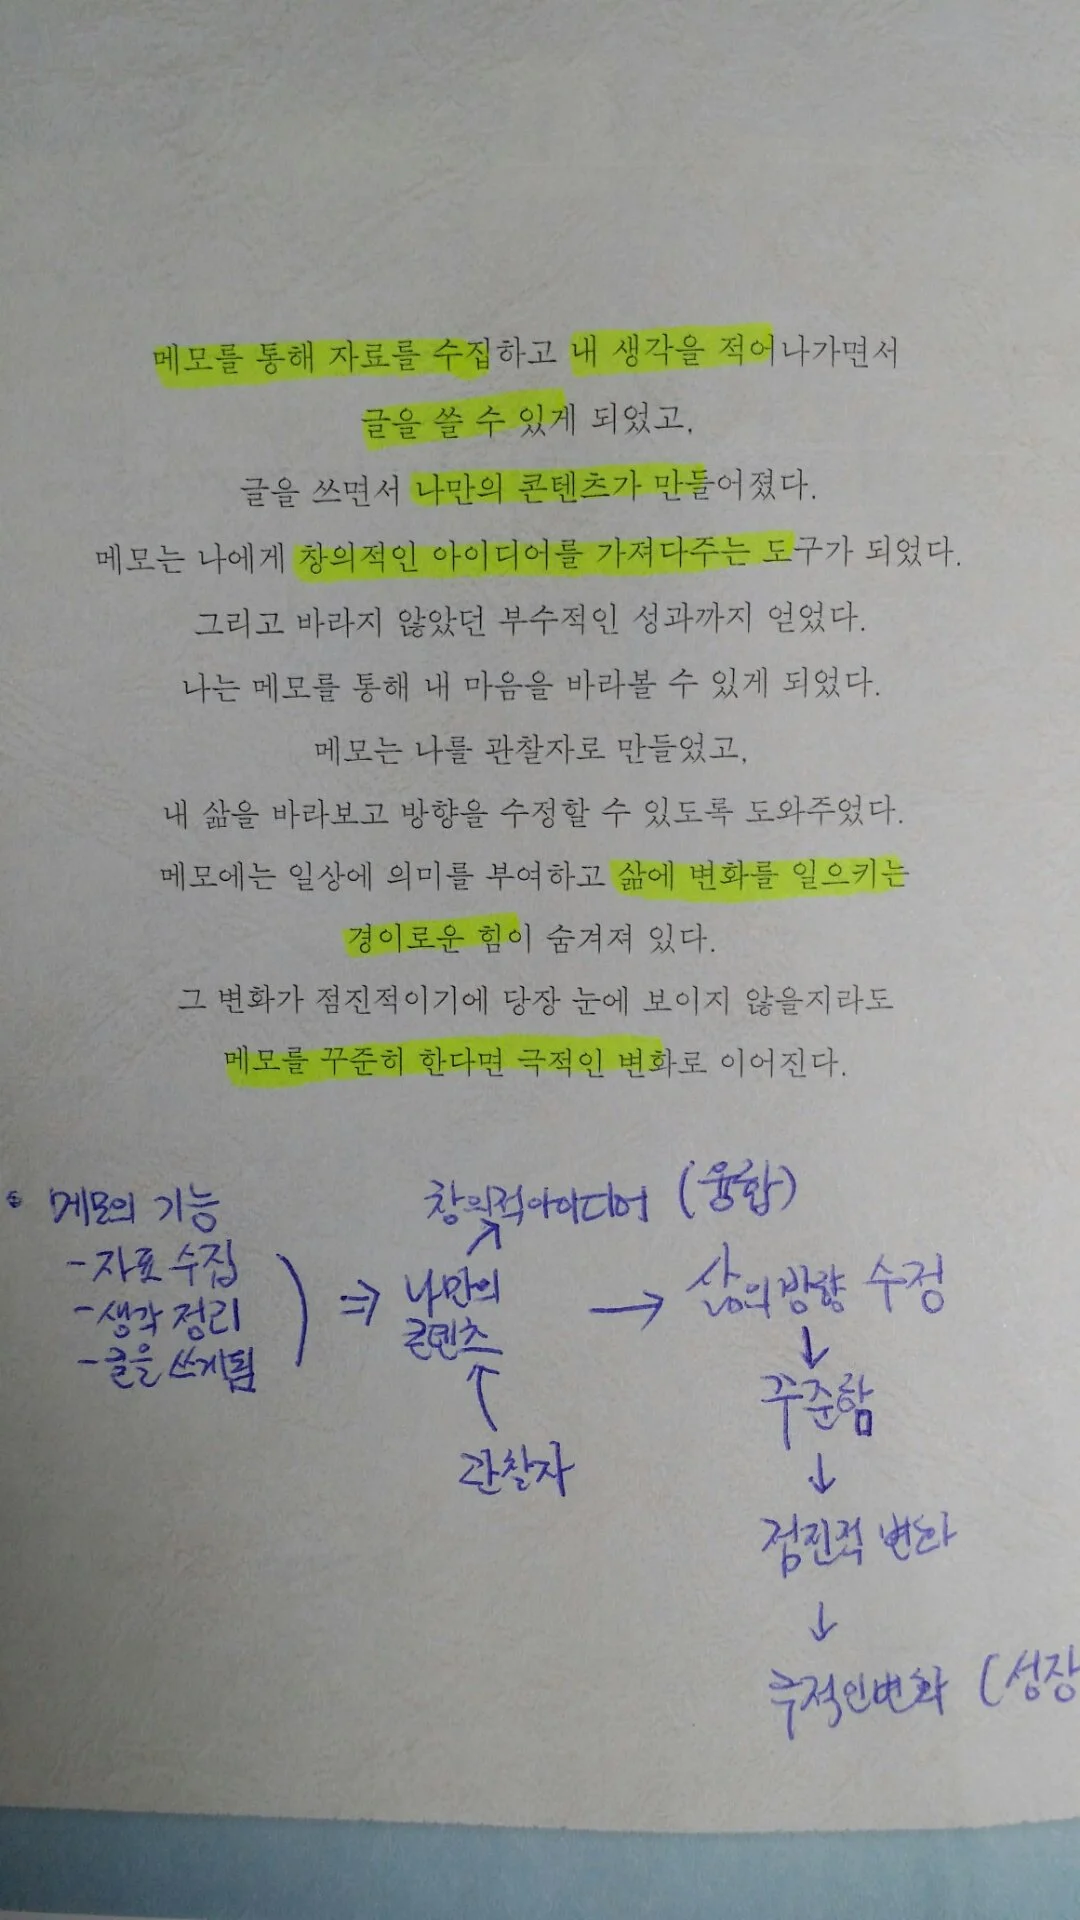 메모를 통해 자료를 수집하고 내 생각을 적어나가면서
글을 쓸 수 있게 되었고,
글을 쓰면서 나만의 콘텐츠가 만들어졌다.
메모는 나에게 창의적인 아이디어를 가져다주는 도구가 되었다.
그리고 바라지 않았던 부수적인 성과까지 얻었다.
나는 메모를 통해 내 마음을 바라볼 수 있게 되었다.
메모는 나를 관찰자로 만들었고,
내 삶을 바라보고 방향을 수정할 수 있도록 도와주었다.
메모에는 일상에 의미를 부여하고 삶에 변화를 일으키는
경이로운 힘이 숨겨져 있다.
그 변화가 점진적이기에 당장 눈에 보이지 않을지라도
메모를 꾸준히 한다면 극적인 변화로 이어진다.
• 메모의 기능
- 자료 수집
- 생각 정리
- 글을 쓰게됨
⇒
창의적아이디어 (융합)
↗
나만의
콘텐츠
↑
관찰자
→ 삶의 방향 수정
↓
꾸준함
↓
점진적 변화
↓
극적인변화 (성장